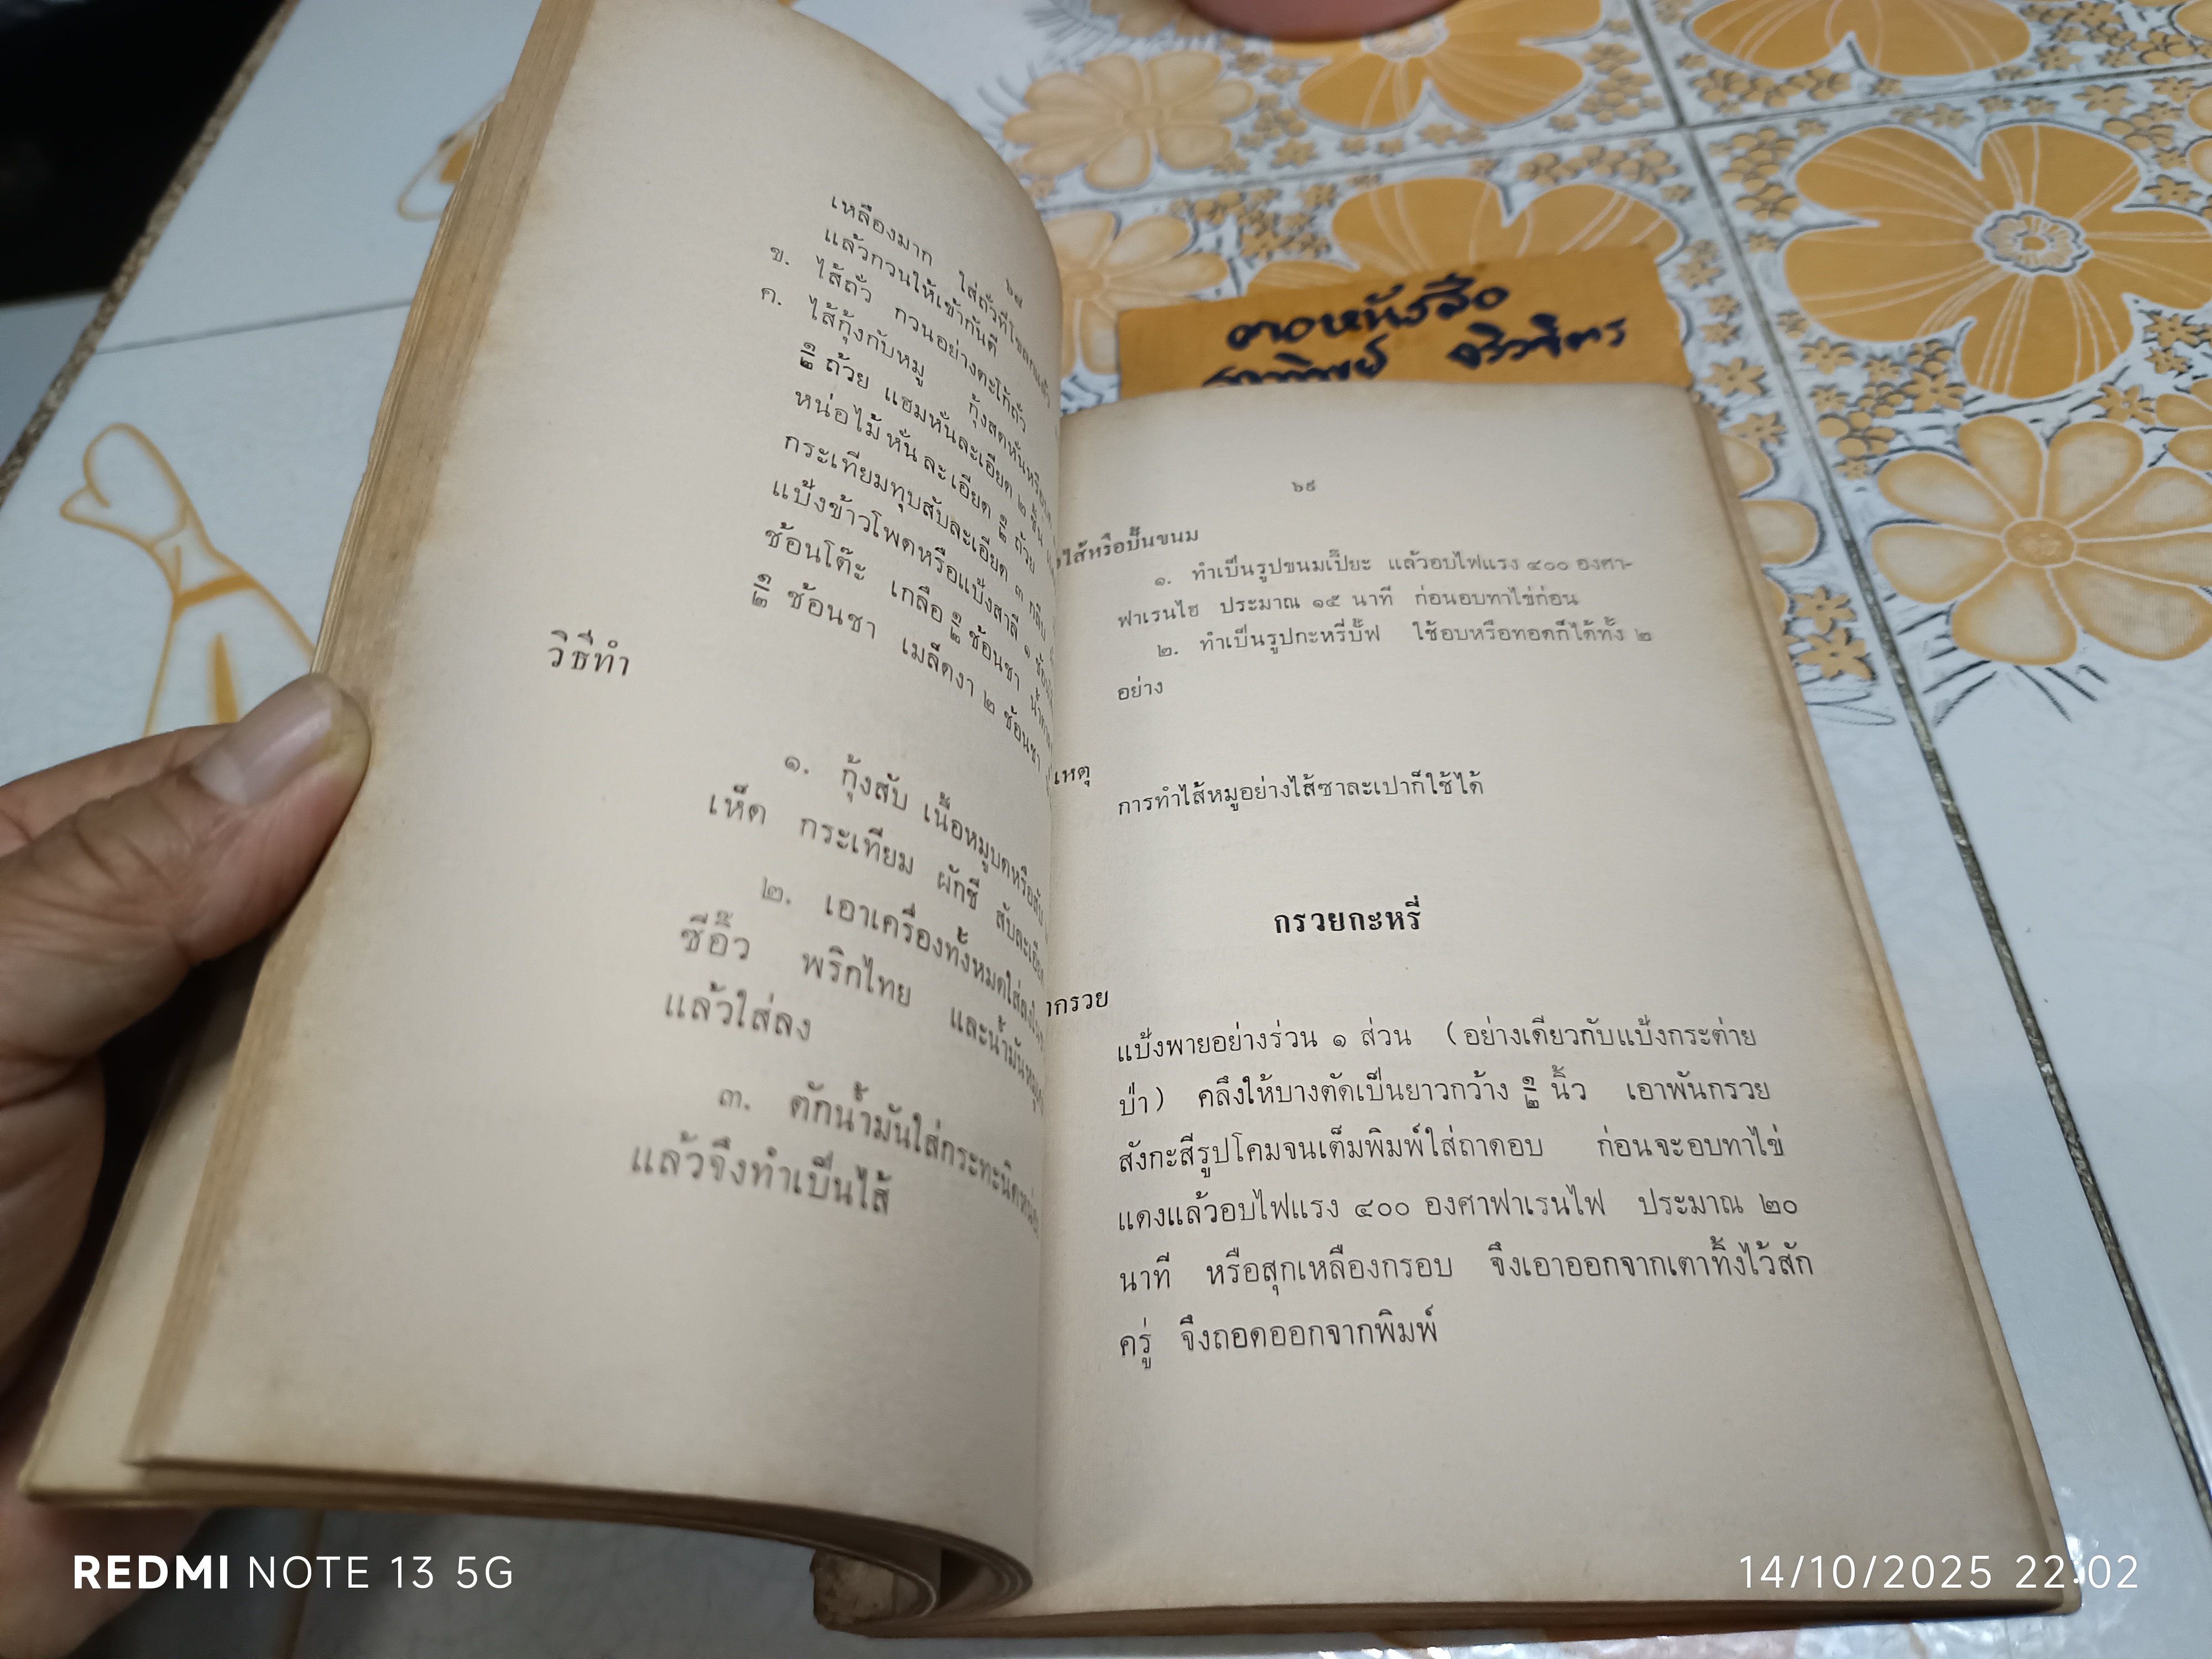 ๖๘
เหลืองมาก ใส่ถั่วที่
แล้วกวนให้เข้ากันดี
ข. ไส้ถั่ว กวนอย่างตะโก้ถั่ว
ค. ไส้กุ้งกับหมู กุ้งสดหั่นหรือ
๑/๒ ถ้วย แฮมหั่นละเอียด ๒ ชิ้น
หน่อไม้หั่นละเอียด ๑/๒ ถ้วย
กระเทียมทุบสับละเอียด ๓ กลีบ
แป้งข้าวโพดหรือแป้งสาลี ๑
ช้อนโต๊ะ เกลือ ๑/๒ ช้อนชา
๑/๒ ช้อนชา เมล็ดงา ๒ ช้อนชา
วิธีทำ
๑. กุ้งสับ เนื้อหมูบดหรือสับ
เห็ด กระเทียม ผักชี สับละเอียด
๒. เอาเครื่องทั้งหมดใส่ลง
ซีอิ๊ว พริกไทย และน้ำมัน
แล้วใส่ลง
๓. ตักน้ำมันใส่กระทะนิดหน่อย
แล้วจึงทำเป็นไส้
๖๙
ไส้หรือปั้นขนม
๑. ทำเป็นรูปขนมเปี๊ยะ แล้วอบไฟแรง ๔๐๐ องศา-
ฟาเรนไฮ ประมาณ ๑๕ นาที ก่อนอบทาไข่ก่อน
๒. ทำเป็นรูปกะหรี่บั๊ฟ ใช้อบหรือทอดก็ได้ทั้ง ๒
อย่าง
เหตุ
การทำไส้หมูอย่างไส้ซาละเปาก็ใช้ได้
กรวยกะหรี่
ากรวย
แป้งพายอย่างร่วน ๑ ส่วน (อย่างเดียวกับแป้งกระต่าย
ป่า) คลึงให้บางตัดเป็นยาวกว้าง ๑/๒ นิ้ว เอาพันกรวย
สังกะสีรูปโคมจนเต็มพิมพ์ใส่ถาดอบ ก่อนจะอบทาไข่
แดงแล้วอบไฟแรง ๔๐๐ องศาฟาเรนไฟ ประมาณ ๒๐
นาที หรือสุกเหลืองกรอบ จึงเอาออกจากเตาทิ้งไว้สัก
ครู่ จึงถอดออกจากพิมพ์
REDMI NOTE 13 5G
14/10/2025 22:02